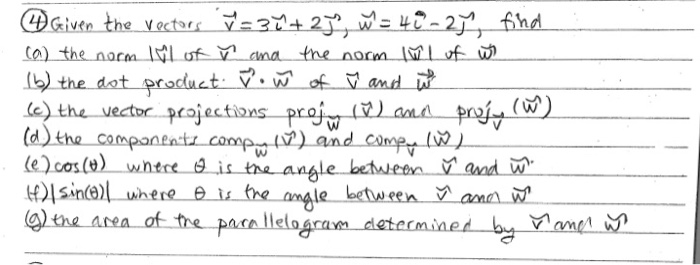 ④ Given the vectors v⃗ = 3i⃗ + 2j⃗, w⃗ = 4i⃗ - 2j⃗, find
(a) the norm |v⃗| of v⃗ and the norm |w⃗| of w⃗
(b) the dot product v⃗ · w⃗ of v⃗ and w⃗
(c) the vector projections proj_w⃗ (v⃗) and proj_v⃗ (w⃗)
(d) the components comp_w⃗ (v⃗) and comp_v⃗ (w⃗)
(e) cos(θ) where θ is the angle between v⃗ and w⃗.
(f) |sin(θ)| where θ is the angle between v⃗ and w⃗
(g) the area of the parallelogram determined by v⃗ and w⃗